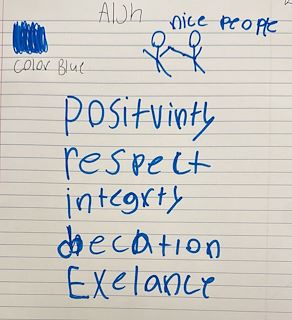 nice people
color Blue
positvinty
respect
integrty
decation
Exelance